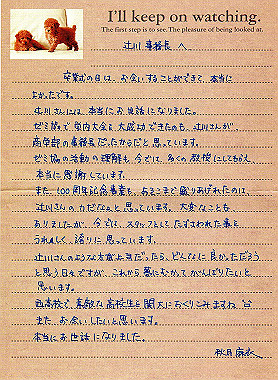 I'll keep on watching.
The first step is to see. The pleasure of being looked at.
辻川 事務長 へ
卒業式の日は、お会いすることができて、本当に
よかったです。
辻川さんには 本当にお世話になりました。
ゼミ協で 学内大会を大成功できたのも、辻川さんが
商学部の事務長だったからだと思っています。
ゼミ協の活動の理解も、今では、多くの教授にしてもらえ
本当に感謝しています。
また、100周年記念事業も、あそこまで盛りあげれたのは、
辻川さんの力だなぁと思っています。大変なことも
ありましたが、今では、スタッフとしてたずさわれた事を
うれしく、誇りに思っています。
辻川さんのような太倉上司だったら、どんなに良かっただろう
と思う日々ですが、これから夢にむかってがんばりたいと
思います。
高校で、素敵な高校生を関大におくりこみますね
また、お会いしたいと思います。
本当にお世話になりました。
秋月 麻衣